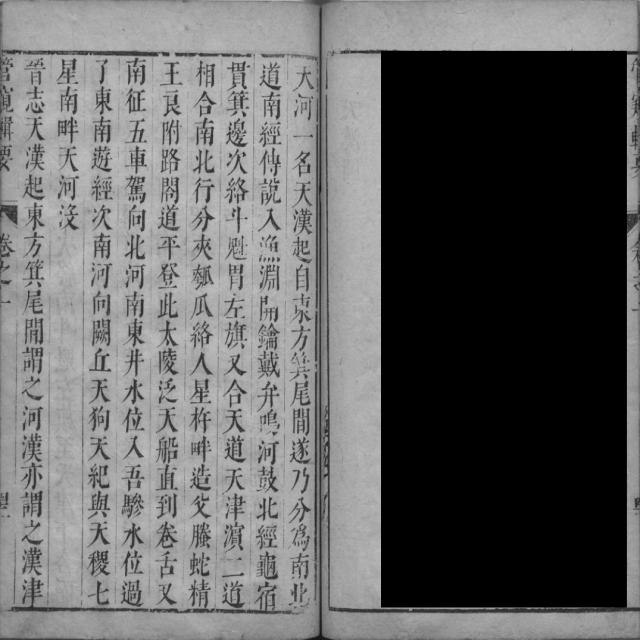 天河一名天漢起自東方箕尾間遂乃分為南北
道南經傳說入漁淵開鑰戴弁鳴河鼓北經龜宿
貫箕邊次絡斗魁冒左旗又合天道天津湏二道
相合南北行分夾瓠瓜絡人星杵畔造父螣蛇精
王良附路閣道平登此太陵泛天船直到卷舌又
南征五車駕向北河南東井水位入吾驂水位過
了東南遊經次南河向闕丘天狗天紀與天稷七
星南畔天河没
晉志天漢起東方箕尾間謂之河漢亦謂之漢津